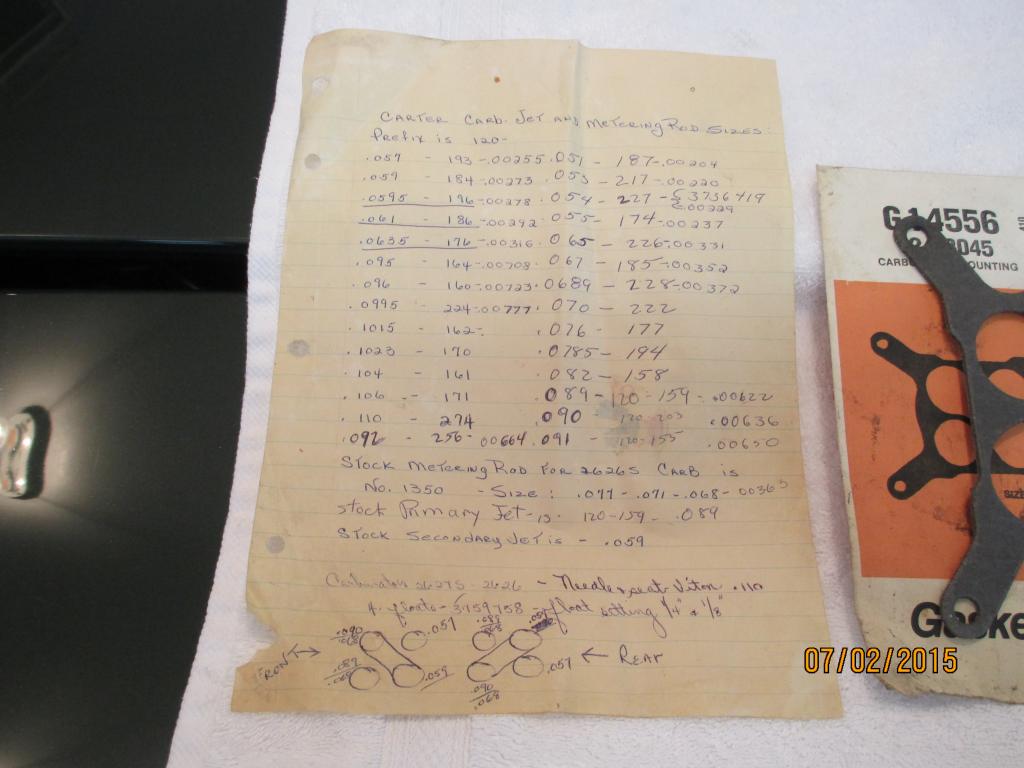 CARTER CARB. JET AND METERING ROD SIZES:
PREFIX IS 120-
.057 - 193 -.00255 .051 - 187-.00204
.059 - 184 -.00273 .053 - 217 -.00220
.0595 - 196 -.00278 .054 - 227 - 3736419
.00229
.061 - 186 -.00292 .055 - 174 -.00237
.0635 - 176 -.00316 .065 - 226-.00331
.095 - 164 -.00708 .067 - 185-.00352
.096 - 160 -.00723 .0689 - 228-00372
.0995 - 224-.00777 .070 - 222
.1015 - 162- .076 - 177
.1023 - 170 .0785 - 194
.104 - 161 .082 - 158
.106 - 171 .089 - 120 - 159 - .00622
.110 - 274 .090 120-203 .00636
.092 - 256 - 00664 .091 - 120-155 .00650
STOCK METERING ROD FOR 2626S CARB is
No. 1350 - SIZE: .077 - .071 - .068 - 00363
STOCK Primary Jet - is. 120-159 - .089
STOCK SECONDARY JET is - .059
Carburators 2627S - 2626 - Needle & seat Viton .110
4. floats - 3759758 - float setting 1/4" & 1/8"
.090
.068
.057
.089
.068
.057
FRONT
.089
.068
.059
.090
.068
.057
REAR
G14556
045
CARB OUNTING
SIZE
Gaske
07/02/2015